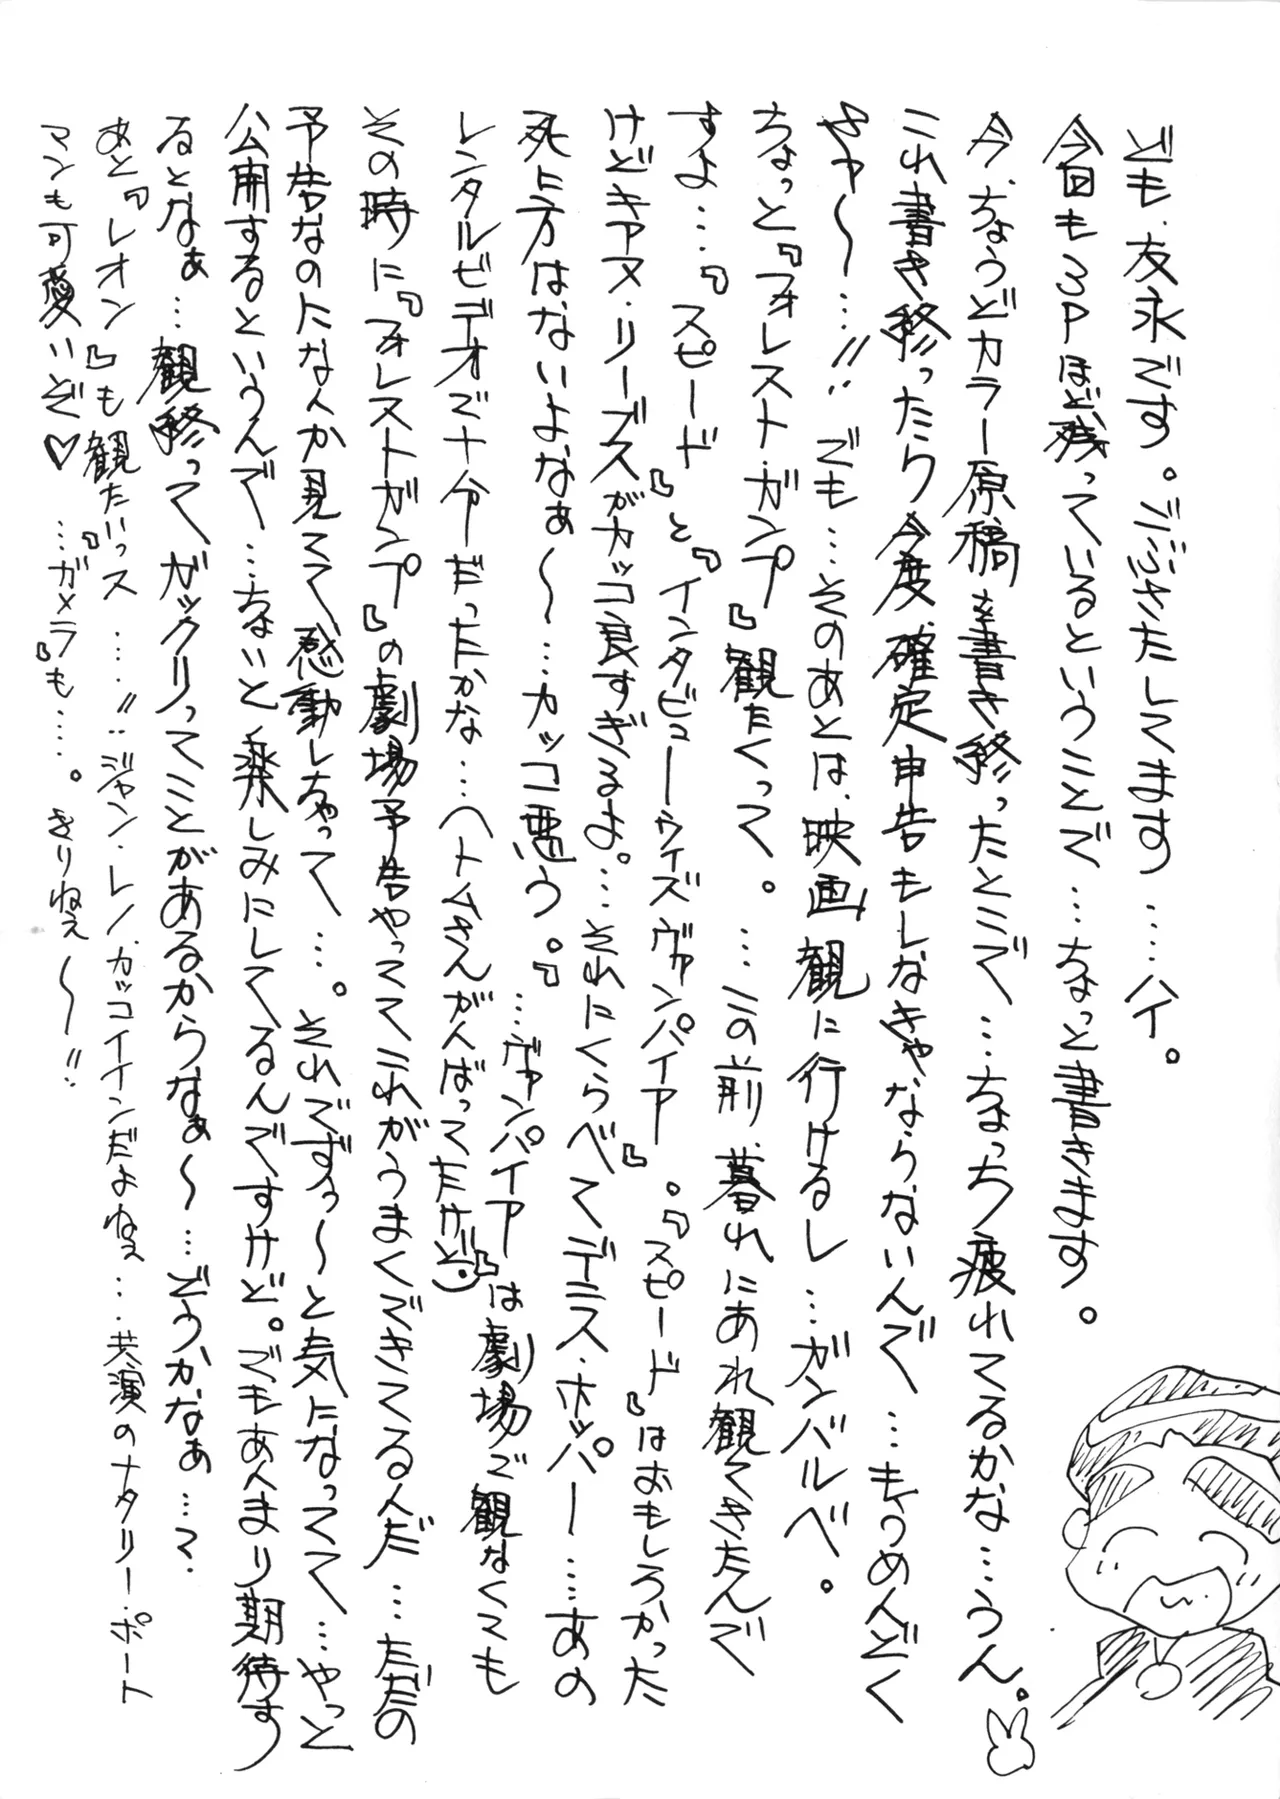 ども、友永です。ごぶさたしてます……ハイ。
今回も3Pほど残っているということで…ちょっと書きます。
今、ちょうどカラー原稿を書き終ったとこで…ちょっち疲れてるかな…うん。
これ書き終ったら今度、確定申告もしなきゃならないんで…もうめんどく
さァ〜…!!でも…そのあとは、映画観に行けるし…ガンバルべ。
ちょっと『フォレスト・ガンプ』観たくって。…この前、暮れにあれ観てきたんで
すよ…『スピード』と『インタビューウィズヴァンパイア』。『スピード』はおもしろかった
けどキアヌ・リーブスがカッコ良すぎるよ。…それにくらべてデニス・ホッパー……あの
死に方はないよなぁ〜…カッコ悪う。『…ヴァンパイア』は劇場で観なくても
レンタルビデオで十分だったかな…(トムさんがんばってたけど)
その時に『フォレストガンプ』の劇場予告やっててこれがうまくできてるんだ…ただの
予告なのになんか見てて感動しちゃって…。それでずぅ〜と気になってて…やっと
公開するというんで…ちょいと楽しみにしてるんですけど。でもあんまり期待す
るとなぁ…観終ってガックリってことがあるからなぁ〜…どうかなぁ…て
あと『レオン』も観たいっス…!!ジャン・レノ、カッコイインだよねぇ…共演のナタリー・ポート
マンも可愛いぞ♡…『ガメラ』も…。きりねぇ〜!!